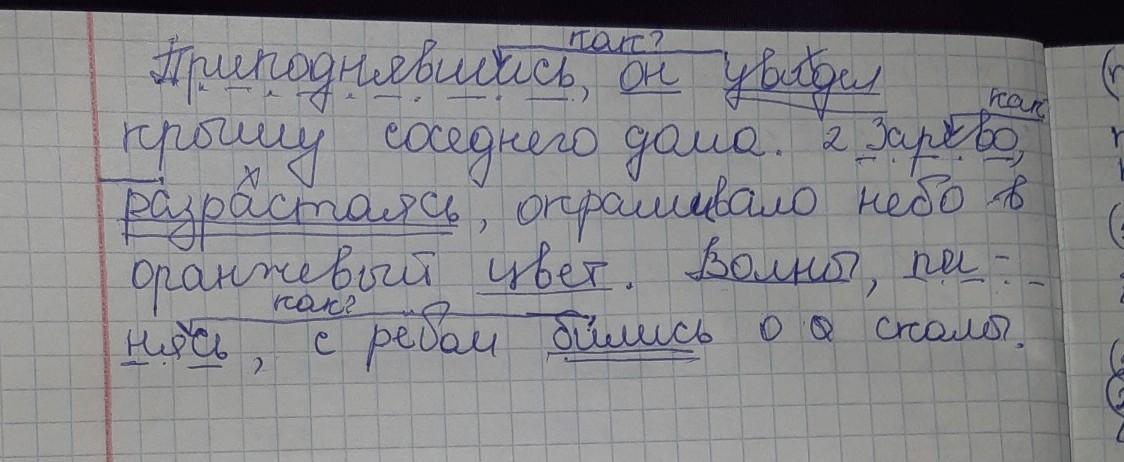 как?
Приподнявшись, он увидел
как
крышу соседнего дома. 2 Зарево,
разрастаясь, окрашивало небо в
оранжевый цвет. Волны, пе-
как?
нясь, с ревом бились о скалы.